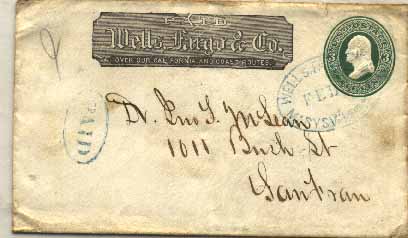 PAID
Wells, Fargo & Co.
OVER OUR CALIFORNIA AND COAST ROUTES.
WELLS, F
FEB
YSVI
PAID
Dr. Jno S. McLean
1011 Bush St
San Fran